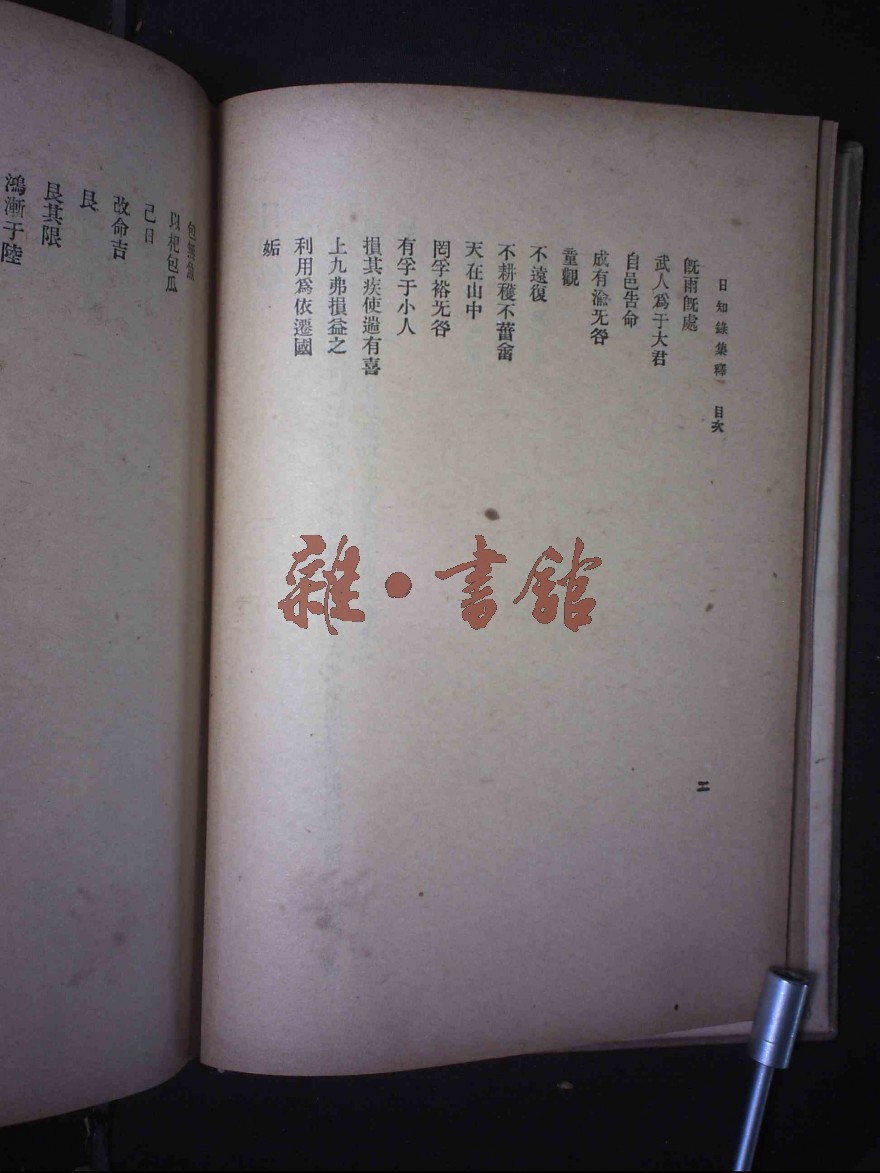 日知錄集釋 目次
二
旣雨旣處
武人爲于大君
自邑告命
成有渝无咎
童觀
不遠復
不耕穫不菑畬
天在山中
罔孚裕无咎
有孚于小人
損其疾使遄有喜
上九弗損益之
利用爲依遷國
姤
包無魚
以杞包瓜
己日
改命吉
艮
艮其限
鴻漸于陸
雜·書館